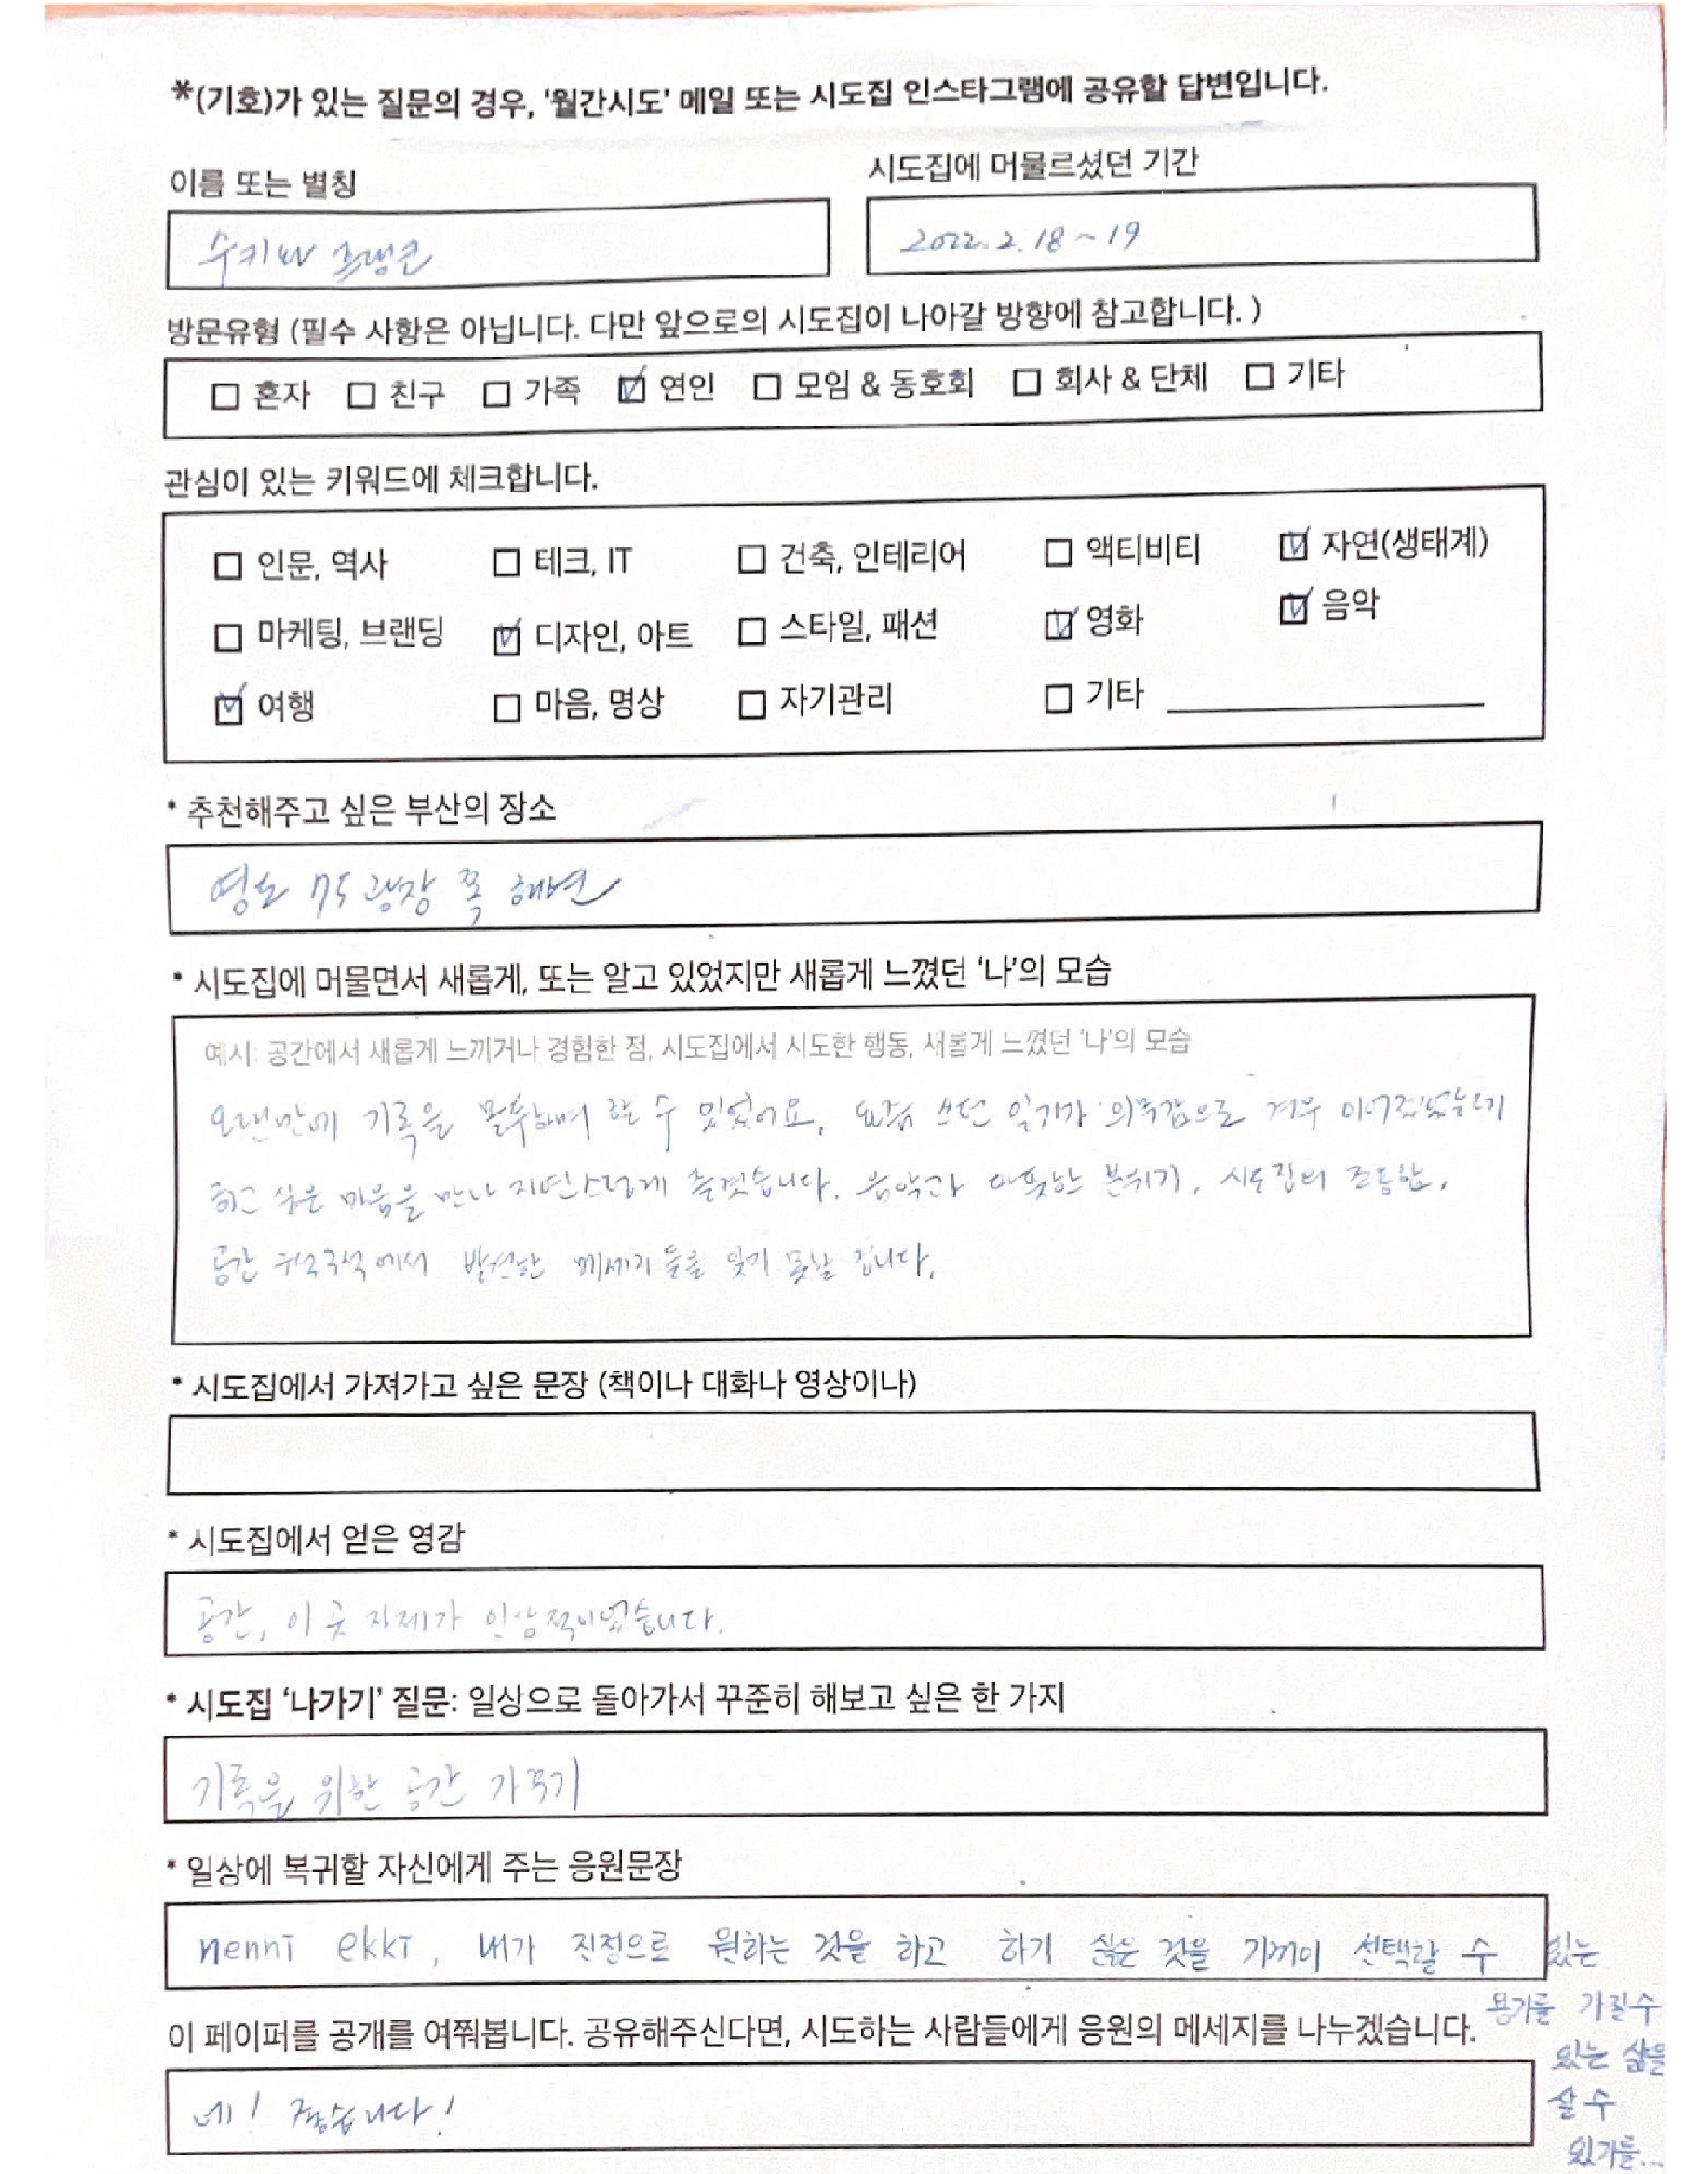 *(기호)가 있는 질문의 경우, '월간시도' 메일 또는 시도집 인스타그램에 공유할 답변입니다.
이름 또는 별칭
시도집에 머물르셨던 기간
수키
2022. 2. 18 ~ 19
방문유형 (필수 사항은 아닙니다. 다만 앞으로의 시도집이 나아갈 방향에 참고합니다. )
혼자 친구 가족 연인 모임 & 동호회 회사 & 단체 기타
관심이 있는 키워드에 체크합니다.
인문, 역사 테크, IT 건축, 인테리어 액티비티 자연(생태계)
마케팅, 브랜딩 디자인, 아트 스타일, 패션 영화 음악
여행 마음, 명상 자기관리 기타
* 추천해주고 싶은 부산의 장소
영도 75 광장 쪽 해변
* 시도집에 머물면서 새롭게, 또는 알고 있었지만 새롭게 느꼈던 '나'의 모습
예시: 공간에서 새롭게 느끼거나 경험한 점, 시도집에서 시도한 행동, 새롭게 느꼈던 '나'의 모습
오랜만에 기록을 몰두하며 할 수 있었어요. 요즘 쓰던 일기가 의무감으로 겨우 이어졌었는데
하고 싶은 마음을 만나 자연스럽게 즐겼습니다. 음악과 따뜻한 분위기, 시도집의 조용함.
공간 구석구석에서 발견한 메세지 들을 잊지 못할 겁니다.
* 시도집에서 가져가고 싶은 문장 (책이나 대화나 영상이나)
* 시도집에서 얻은 영감
공간, 이 곳 자체가 인상적이었습니다.
* 시도집 '나가기' 질문: 일상으로 돌아가서 꾸준히 해보고 싶은 한 가지
기록을 위한 공간 가꾸기
* 일상에 복귀할 자신에게 주는 응원문장
nenni ekki, 내가 진정으로 원하는 것을 하고 하기 싫은 것을 기꺼이 선택할 수 있는
용기를 가질 수
있는 삶을
살 수
있기를...
이 페이퍼를 공개를 여쭤봅니다. 공유해주신다면, 시도하는 사람들에게 응원의 메세지를 나누겠습니다.
네! 좋습니다!